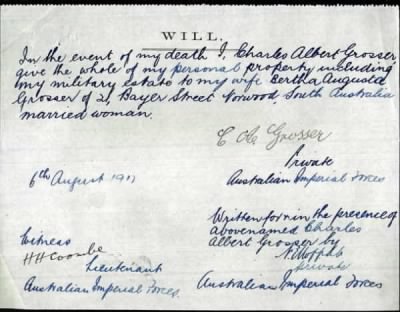 WILL.
In the event of my death I, Charles Albert Grosser,
give the whole of my personal property including
my military estate to my wife Bertha Augusta
Grosser of 21, Bayer Street Norwood, South Australia
married woman.
C A Grosser
Private
6th August 1917
Australian Imperial Forces
Written for in the presence of
abovenamed Charles
Albert Grosser by
Private
Australian Imperial Forces
Witness
HH Coombe
Lieutenant
Australian Imperial Forces.